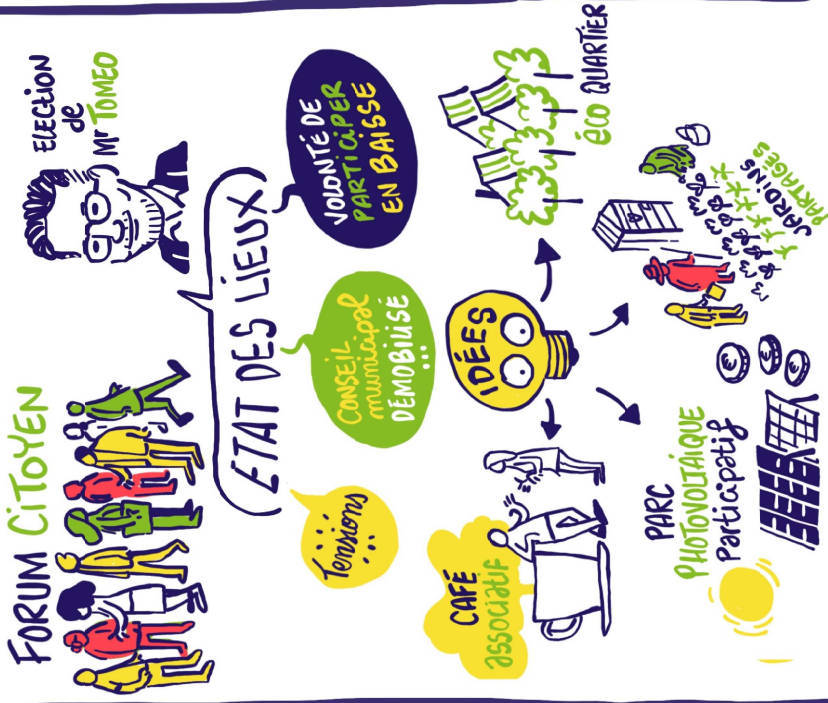 FORUM CiToYEN
ELECTiON
de
Mr TOMEO
ETAT DES LIEUX
Tensions
...
CONSEIL
municipal
DÉMOBILISÉ
...
VOLONTÉ DE
PARTICiPER
EN BAISSE
IDÉES
CAFÉ
associatif
PARC
PHOTOVOLTAÏQUE
Participatif
€
€
€
JARDINS
PARTAGÉS
éco QUARTIER